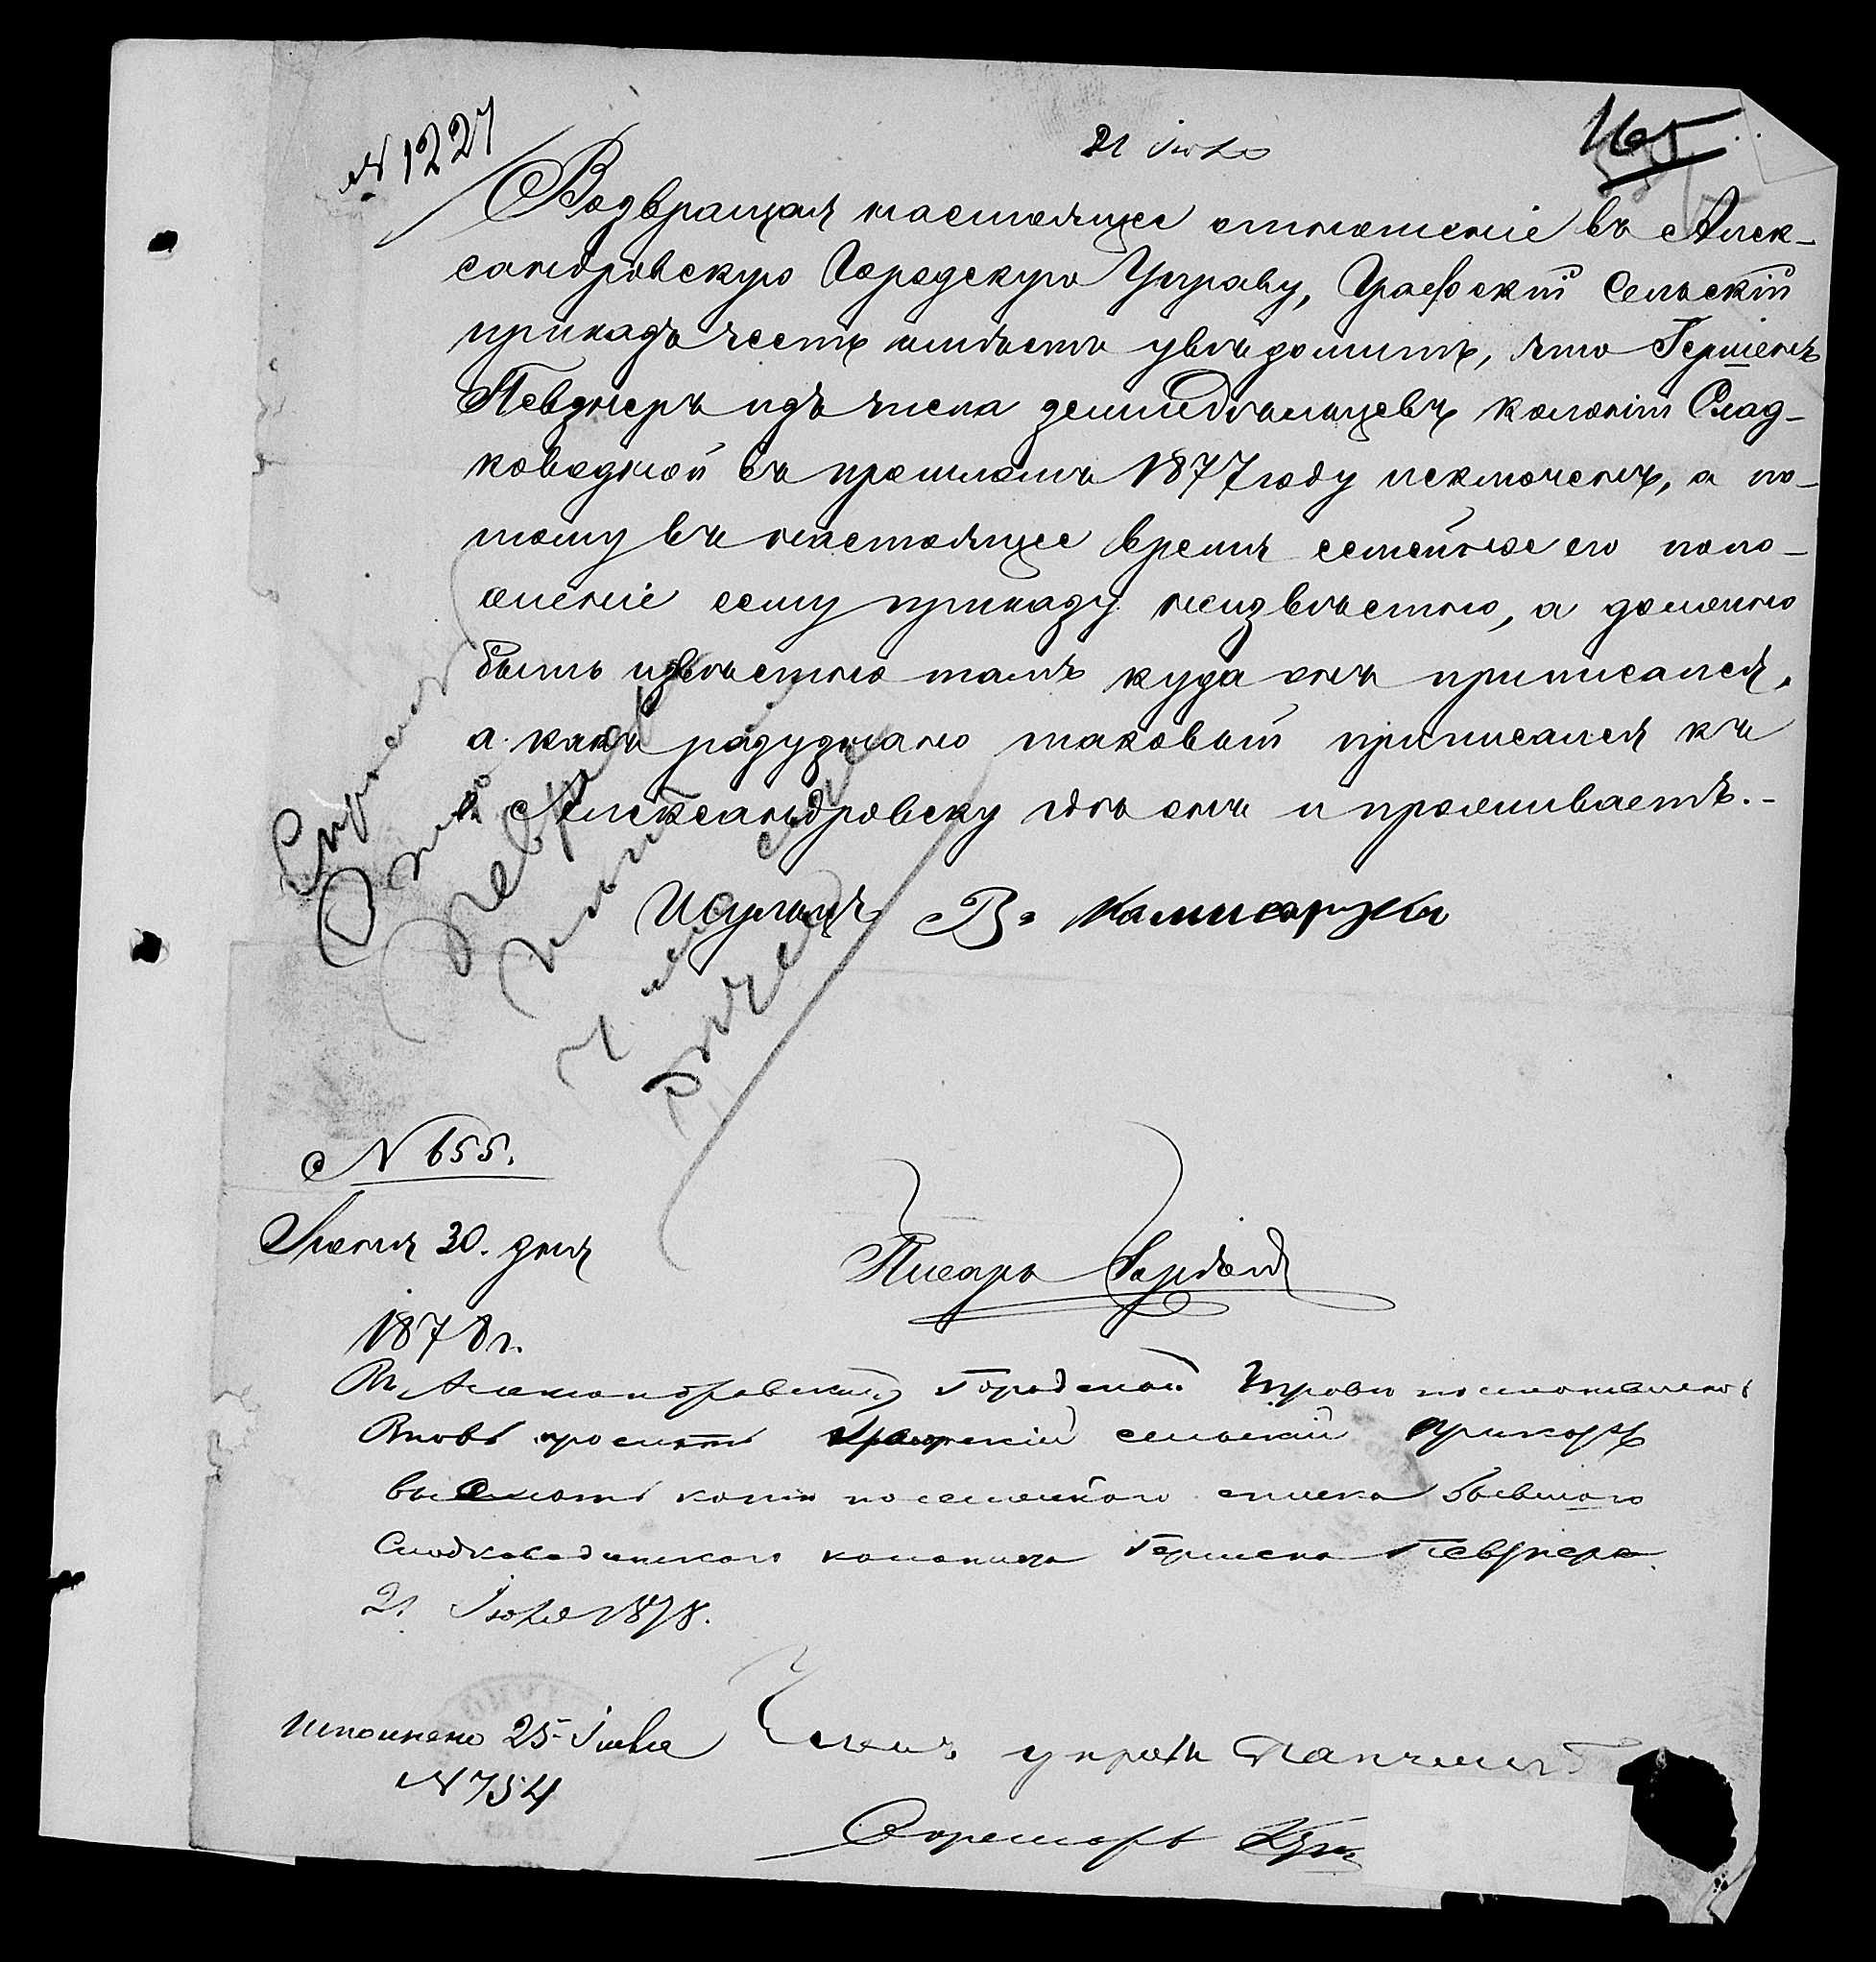 № 1227
21 Іюля
165
Возвращая настоящее отношеніе въ Алек-
сандровскую Городскую Управу, Графскій Сельскій
приказъ честь имѣетъ увѣдомить, что Гершенъ
Певзнеръ изъ числа земледѣльцевъ колоніи Слад-
ководной въ прошломъ 1877 году исключенъ, а по-
тому въ настоящее время семейное его поло-
женіе сему приказу неизвѣстно, а должно
быть извѣстно тамъ куда онъ приписался,
а какъ разузнано таковый приписался къ
г. Александровску гдѣ онъ и проживаетъ.-
Шульцъ В.
№ 655.
Іюня 30. дня
1878 г.
Писарь
Въ Александровской Городской Управѣ постановлено:
Вновь просить Графскій сельскій приказъ
выслать копію посемейнаго списка бывшаго
Сладководинскаго колониста Гершена Певзнера
21 Іюля 1878.
Исполнено 25 Іюля
№ 754
Членъ управы
Секретарь